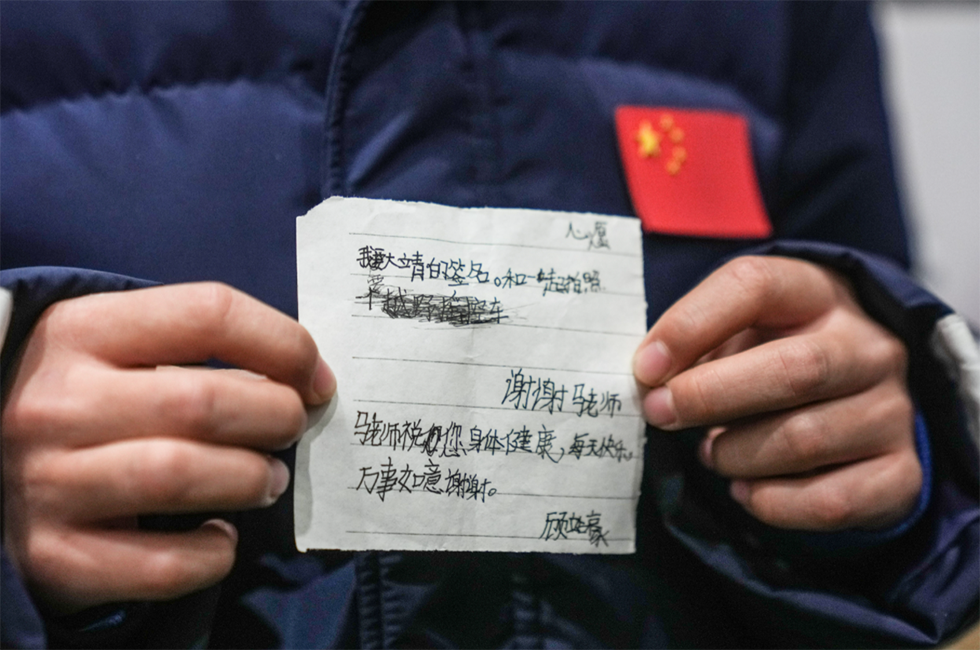 心愿
我要大靖的签名。和一起拍照
谢谢马老师
马老师祝您身体健康,每天快乐。
万事如意谢谢。
顾竑豪